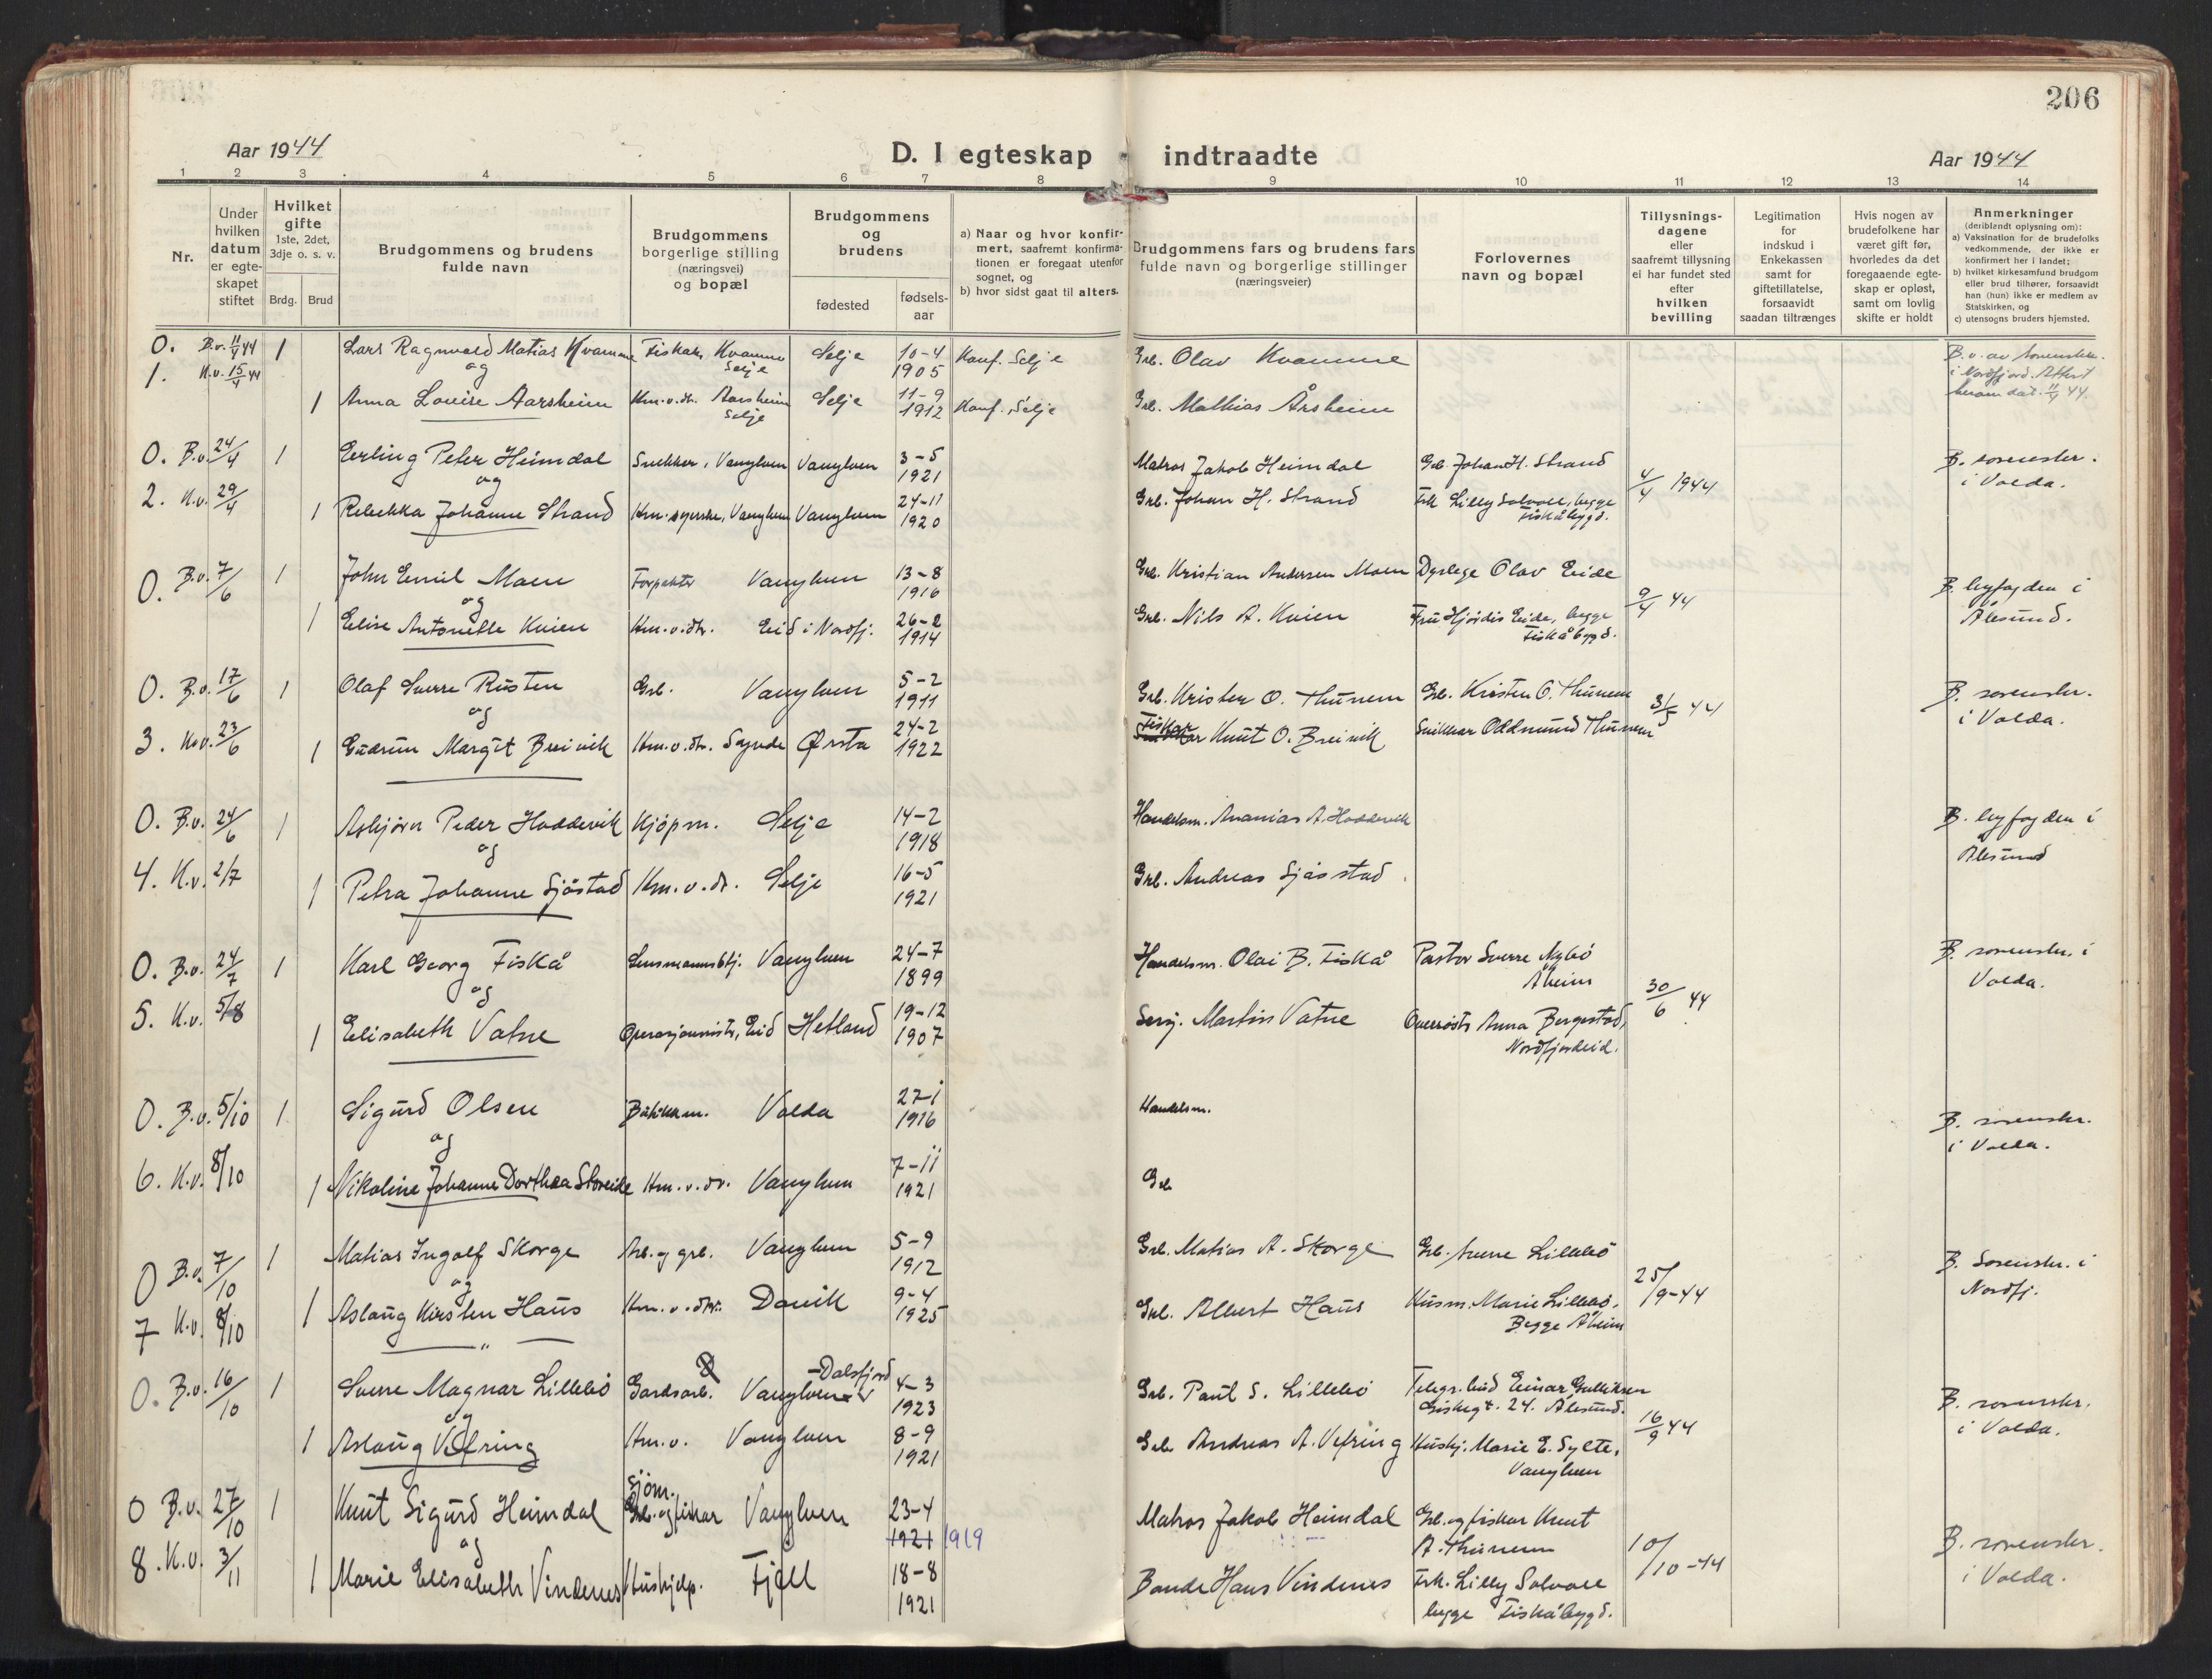 206
Aar 1944
D. I egteskap indtraadte
Aar 1944
1 2 3 4 5 6 7 8 9 10 11 12 13 14
Nr.
Under
hvilken
datum
er egte-
skapet
stiftet
Hvilket
gifte
1ste, 2det,
3dje o. s. v.
Brdg. Brud
Brudgommens og brudens
fulde navn
Brudgommens
borgerlige stilling
(næringsvei)
og bopæl
Brudgommens
og
brudens
fødested
fødsels-
aar
a) Naar og hvor konfir-
mert, saafremt konfirma-
tionen er foregaat utenfor
sognet, og
b) hvor sidst gaat til alters.
Brudgommens fars og brudens fars
fulde navn og borgerlige stillinger
(næringsveier)
Forlovernes
navn og bopæl
Tillysnings-
dagene
eller
saafremt tillysning
ei har fundet sted
efter
hvilken
bevilling
Legitimation
for
indskud i
Enkekassen
samt for
giftetillatelse,
forsaavidt
saadan tiltrænges
Hvis nogen av
brudefolkene har
været gift før,
hvorledes da det
foregaaende egte-
skap er opløst,
samt om lovlig
skifte er holdt
Anmerkninger
(deriblandt oplysning om):
a) Vaksination for de brudefolks
vedkommende, der ikke er
konfirmert her i landet;
b) hvilket kirkesamfund brudgom
eller brud tilhører, forsaavidt
han (hun) ikke er medlem av
Statskirken, og
c) utensogns bruders hjemsted.
0. B.v. 11/4 44 1 Lars Ragnvald Matias Kvamme Fiskar, Kvamme Selje 10-4 Konf. Selje Grb. Olav Kvamme B.v. av sorenskr.
1. K.v. 15/4 44 og Selje 1905 i Nordfjord. Attest
1 Anna Louise Aarsheim Hm.v.dr. Aarsheim Selje 11-9 Konf. Selje Grb. Mathias Årsheim 11/4 44.
Selje 1912
0. B.v. 24/4 1 Erling Peter Heimdal Snekker, Vanylven Vanylven 3-5 Matros Jakob Heimdal Grb. Johan H. Strand B. sorenskr.
og 1921 4/4 1944 i Volda.
2. K.v. 29/4 1 Rebekka Johanne Strand Hm. syerske, Vanylven Vanylven 24-11 Grb. Johan H. Strand Frk. Lilly Solvoll, begge
1920 Fiskåbygd.
0. B.v. 7/6 1 John Emil Moen Forpakter Vanylven 13-8 Grb. Kristian Andersen Moen Dyrlege Olav Eide B. byfogden i
og 1916 9/4 44 Ålesund.
1 Elise Antonette Kvien Hm.v.dtr. Eid i Nordfj. 26-2 Grb. Nils A. Kvien Fru Hjørdis Eide, begge
1914 Fiskåbygd.
0. B.v. 17/6 1 Olaf Sverre Rusten Grb. Vanylven 5-2 Grb. Krister O. Thunem Grb. Kristen O. Thunem B. sorenskr.
og 1911 31/5 44 i Volda.
3. K.v. 23/6 1 Gudrun Margit Breivik Hm.v.dtr. Synde Ørsta 24-2 Fiskar Knut O. Breivik Snikkar Oddmund Thunem
1922
0. B.v. 24/6 1 Asbjørn Peder Hoddevik Kjøpm. Selje 14-2 Handelsm. Ananias A. Hoddevik B. byfogden i
og 1918 Ålesund
4. K.v. 2/7 1 Petra Johanne Sjåstad Hm.v.dr. Selje 16-5 Grb. Andreas Sjåstad
1921
0. B.v. 24/7 1 Karl Georg Fiskå Lensmannsbtj. Vanylven 24-7 Handelsm. Olai B. Fiskå Pastor Sverre Nybø B. sorenskr. i
og 1899 Åheim Volda.
5. K.v. 5/8 1 Elisabeth Vatne Operasjonssøster, Eid Hetland 19-12 Serg. Martin Vatne Oversøster Anna Bergestad, 30/6 44
1907 Nordfjordeid.
0. B.v. 5/10 1 Sigurd Olsen Butikkm. Volda 27-1 Handelsm. B. sorenskr.
og 1916 i Volda.
6. K.v. 8/10 1 Nikoline Johanne Dorthea Storeide Hm.v.dr. Vanylven 7-11 Grb
1921
0 B.v. 7/10 1 Matias Ingolf Skorge Arb. og grb. Vanylven 5-9 Grb. Matias A. Skorge Grb. Sverre Lillebø B. Sorenskr. i
og 1912 25/9-44 Nordfj.
7 K.v. 8/10 1 Aslaug Kirsten Haus Hm.v.dtr. Davik 9-4 Grb. Albert Haus Husm. Marie Lillebø.
1925 Begge Åheim
0. B.v. 16/10 1 Sverre Magnar Lillebø Gardsarb. Vanylven -Dalsfjord 4-3 Grb. Paul S. Lillebø Telegr. bud Einar Gulliksen B. sorenskr.
og 1923 24. Ålesund. 16/9 44 i Volda.
1 Aslaug Vefring Hm.v. Vanylven 8-9 Grb. Andreas A. Vefring Hushj. Marie E. Sylte,
1921 Vanylven
0 B.v. 27/10 1 Knut Sigurd Heimdal sjøm. Grb. og fiskar Vanylven 23-4 Matros Jakob Heimdal Grb. og fiskar Knut B. sorenskr.
og 1921 1919 A. Thunem 10/10-44 i Volda.
8. K.v. 3/11 1 Marie Elisabeth Vindenes Hushjelp. Fjell 18-8 Bonde Hans Vindenes Frk. Lilly Solvoll
1921 begge Fiskåbygd.